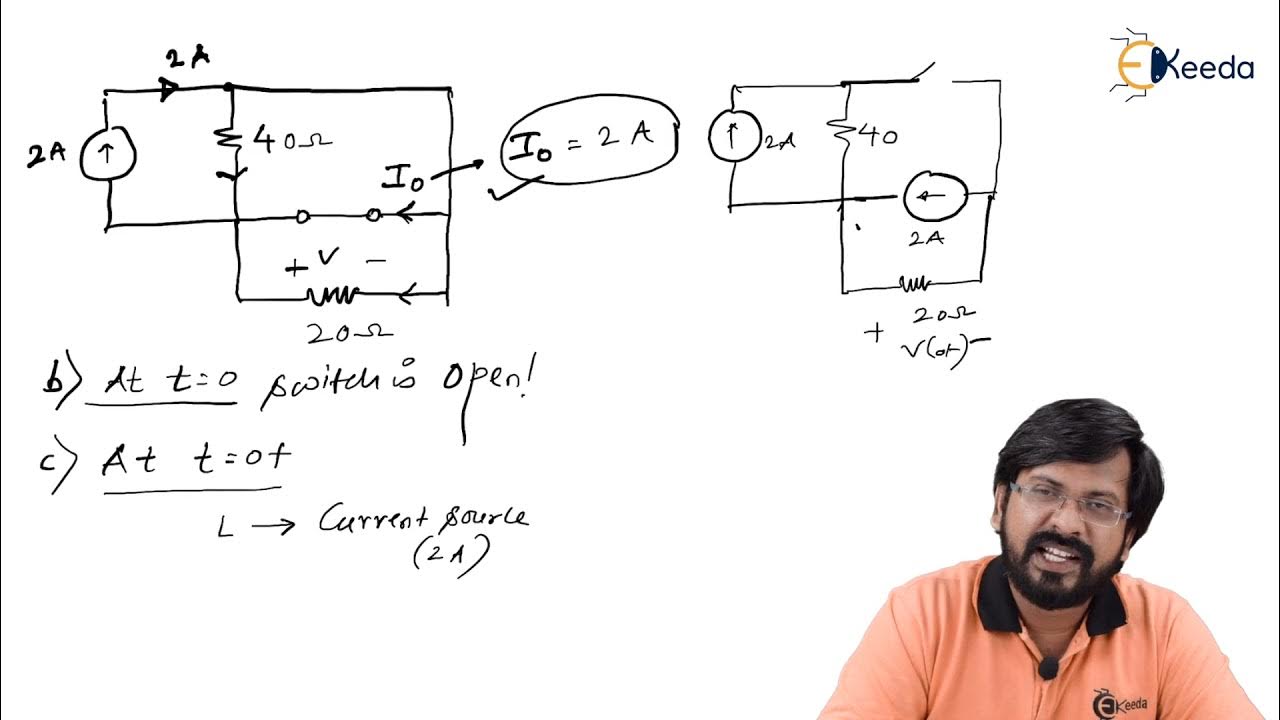 2A
2A
40Ω
I₀
I₀ = 2 A
+ V -
20Ω
2A
40
2A
20Ω
+ V(0+) -
b) At t=0 switch is open!
c) At t=0+
L → Current source
(2A)
EKeeda
EKeeda